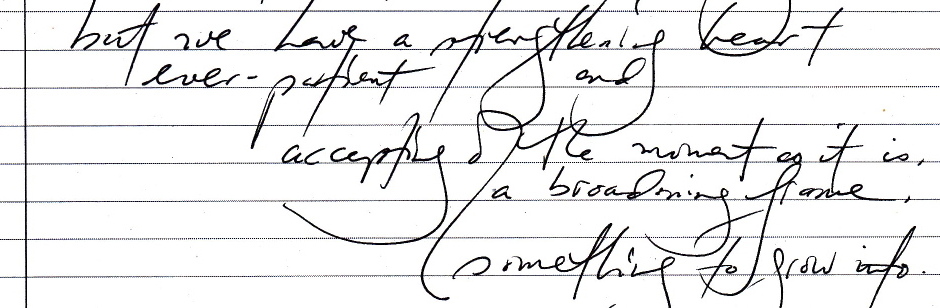 but we have a strengthening heart
ever-patient and
accepting of the moment as it is,
a broadening frame,
something to grow into.